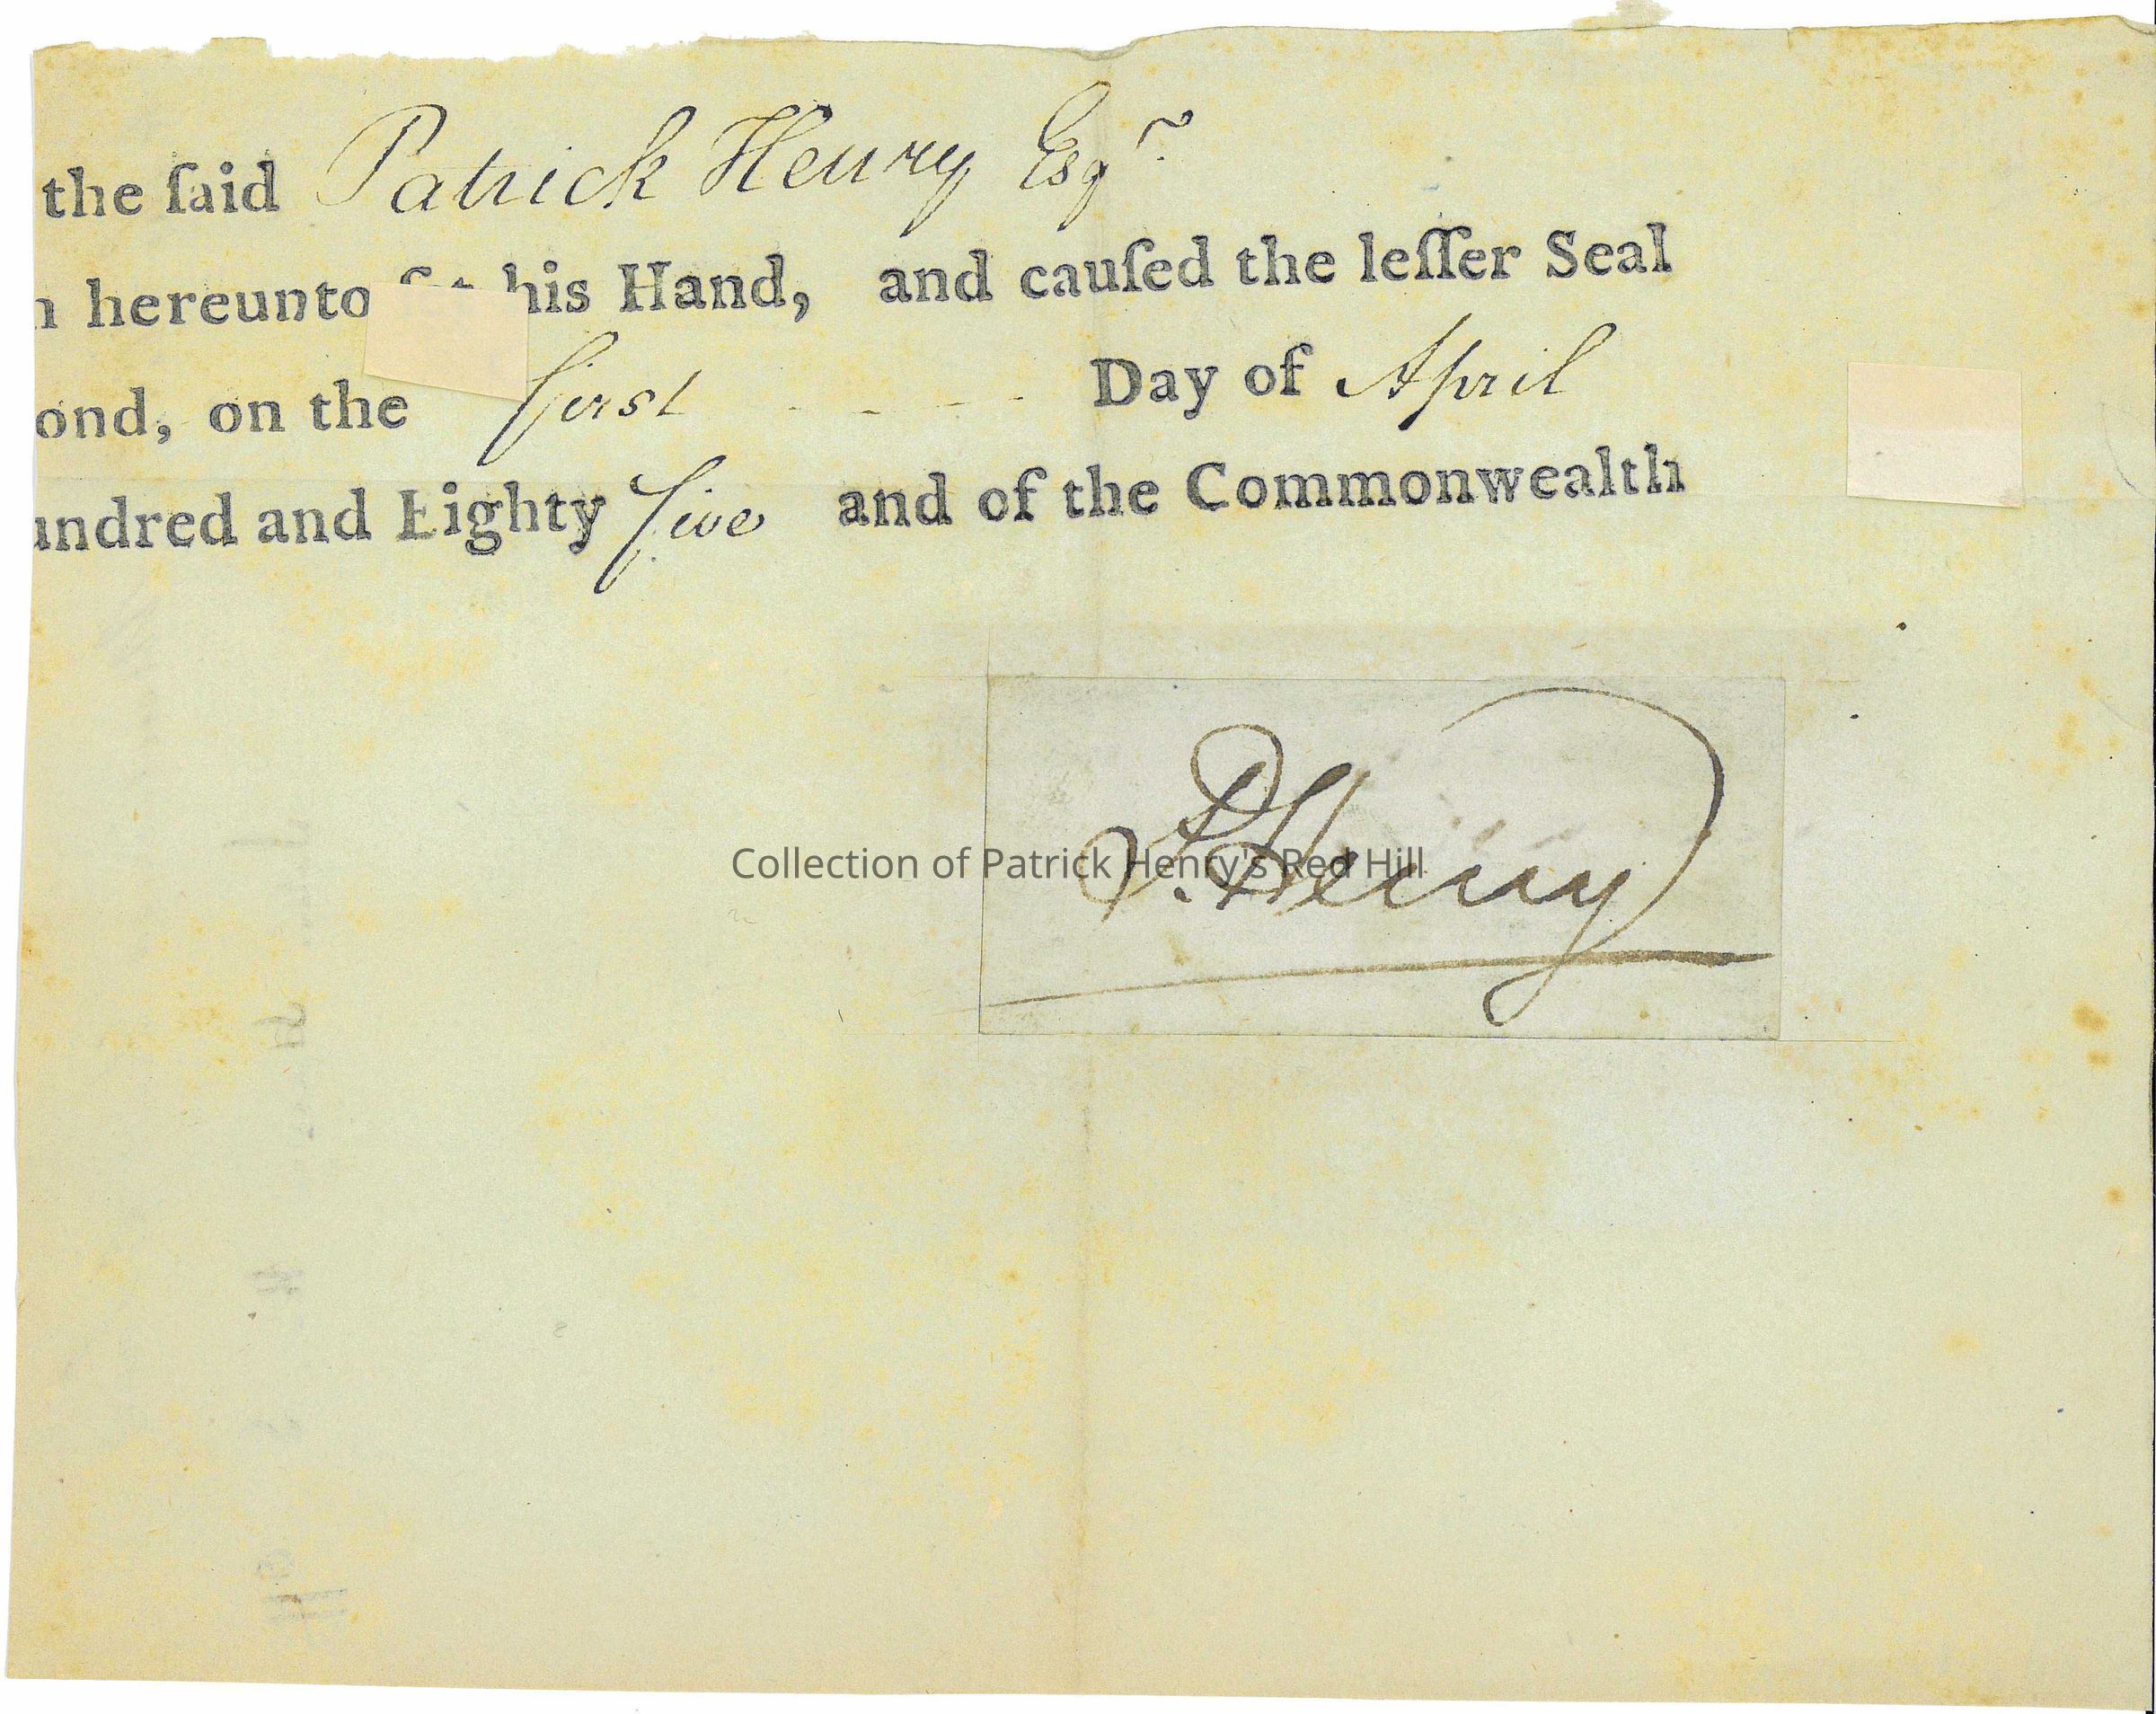 the ſaid Patrick Henry Esqr.
n hereunto his Hand, and cauſed the leſſer Seal
ond, on the first - - - - Day of April
undred and Eighty five and of the Commonwealth
P. Henry
Collection of Patrick Henry's Red Hill